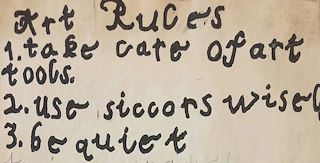 Art Rules
1. take care of art
tools.
2. use siccors wisel
3. be quiet